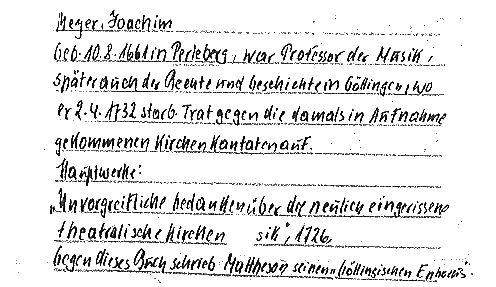 Meyer, Joachim
geb. 10.8.1661 in Perleberg, war Professor der Musik,
später auch der Rechte und Geschichte in Göttingen, wo
er 2.4.1732 starb. Trat gegen die damals in Aufnahme
gekommenen Kirchen Kantaten auf.
Hauptwerke:
„Unvorgreifliche Gedanken über die neulich eingerissene
theatralische Kirchen sik", 1726,
Gegen dieses Buch schrieb Mattheson seinen „Göttingischen Ephorus".